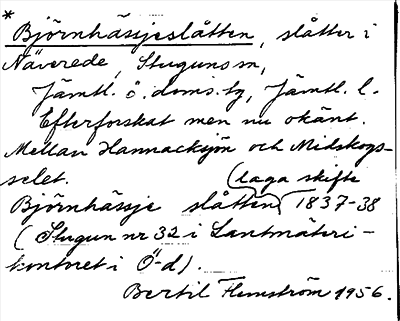 *
Björnhäsjeslåtten, slåtter i
Näverede, Stuguns sn,
Jämtl. ö. doms. tg, Jämtl. l.
Efterforskat men nu okänt.
Mellan Hannacksjön och Midskogs-
selet.
(laga skifte
Björnhässje slåtten, 1837-38
(Stugun nr 32 i Lantmäteri-
kontoret i Ö-d).
Bertil Flemström 1956.